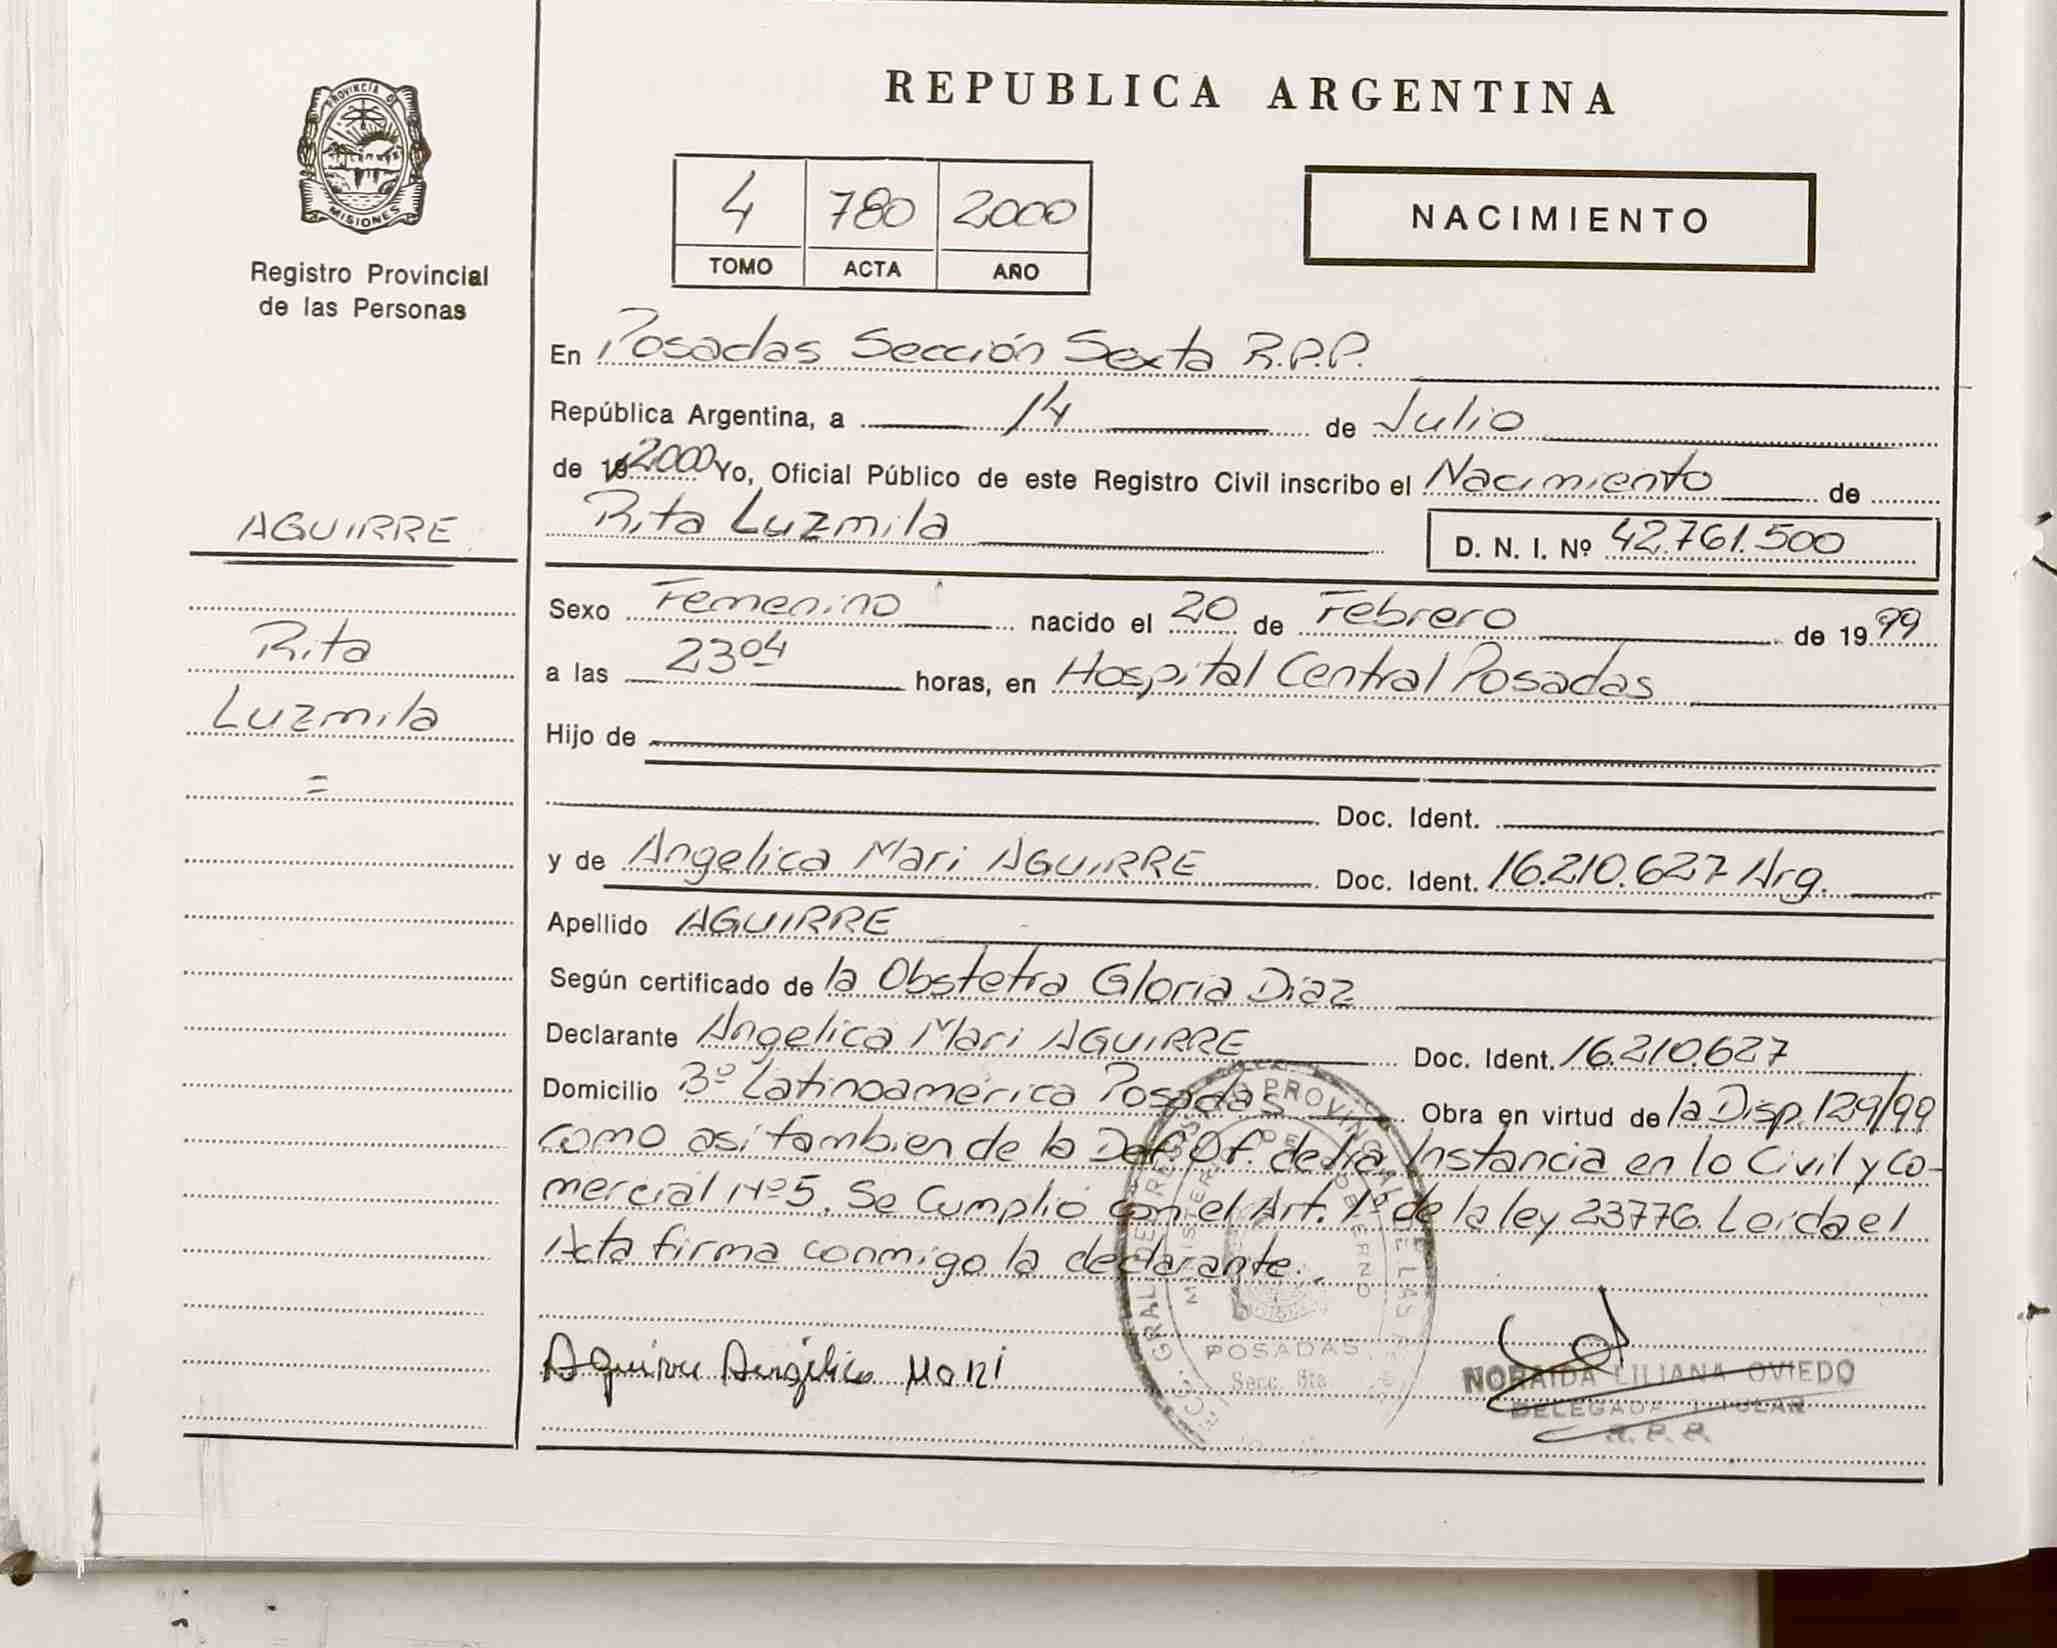 REPUBLICA ARGENTINA
PROVINCIA DE
MISIONES
Registro Provincial
de las Personas
4 780 2000
TOMO ACTA AÑO
NACIMIENTO
En Posadas Sección Sexta R.P.P.
República Argentina, a 14 de Julio
de 19 2000 Yo, Oficial Público de este Registro Civil inscribo el Nacimiento de
Rita Luzmila
D. N. I. Nº 42.761.500
AGUIRRE
Rita
Luzmila
=
Sexo Femenino nacido el 20 de Febrero de 19 99
a las 23 04 horas, en Hospital Central Posadas
Hijo de
Doc. Ident.
y de Angelica Mari AGUIRRE Doc. Ident. 16.210.627 Arg.
Apellido AGUIRRE
Según certificado de la Obstetra Gloria Diaz
Declarante Angelica Mari AGUIRRE Doc. Ident. 16.210.627
Domicilio Bº Latinoamérica Posadas Obra en virtud de la Disp. 129/99
como así tambien de la Def. Of. de 1ra Instancia en lo Civil y Co-
mercial Nº5. Se Cumplió con el Art. 1º de la ley 23776. Leída el
Acta firma conmigo la declarante.
Aguirre Angélica Mari
POSADAS
Secc. 6ta.
NORAIDA LILIANA OVIEDO
DELEGADA TITULAR
R. P. P.